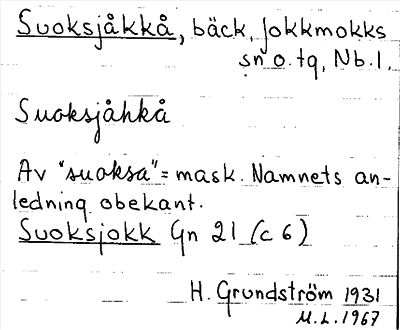 Suoksjåkkå, bäck, Jokkmokks
sn o. tg, Nb. l.
Suoksjåhkå
Av "suoksa" = mask. Namnets an-
ledning obekant.
Suoksjokk Gn 21 (c 6)
H. Grundström 1931
M.L. 1967